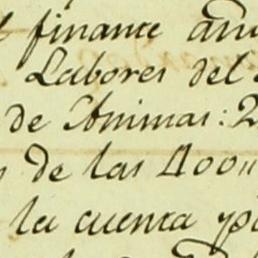 finante
Labores del
de Animas: 2
de las 400"
la cuenta